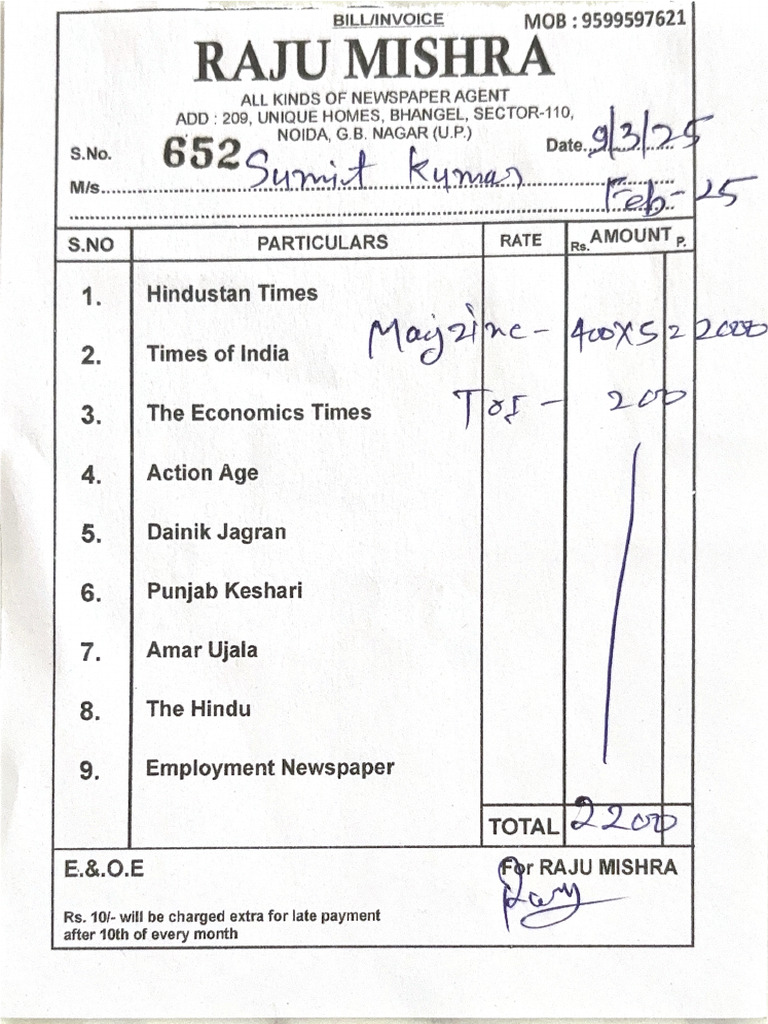 BILL/INVOICE MOB : 9599597621
RAJU MISHRA
ALL KINDS OF NEWSPAPER AGENT
ADD : 209, UNIQUE HOMES, BHANGEL, SECTOR-110,
NOIDA, G.B. NAGAR (U.P.)
S.No. 652 Date. 9/3/25
M/s. Sumit Kumar
Feb-25
S.NO PARTICULARS RATE Rs. AMOUNT P.
1. Hindustan Times
Magzine - 400X5 = 2000
2. Times of India
3. The Economics Times TOI - 200
4. Action Age
5. Dainik Jagran
6. Punjab Keshari
7. Amar Ujala
8. The Hindu
9. Employment Newspaper
TOTAL 2200
E.&.O.E For RAJU MISHRA
Rs. 10/- will be charged extra for late payment
after 10th of every month